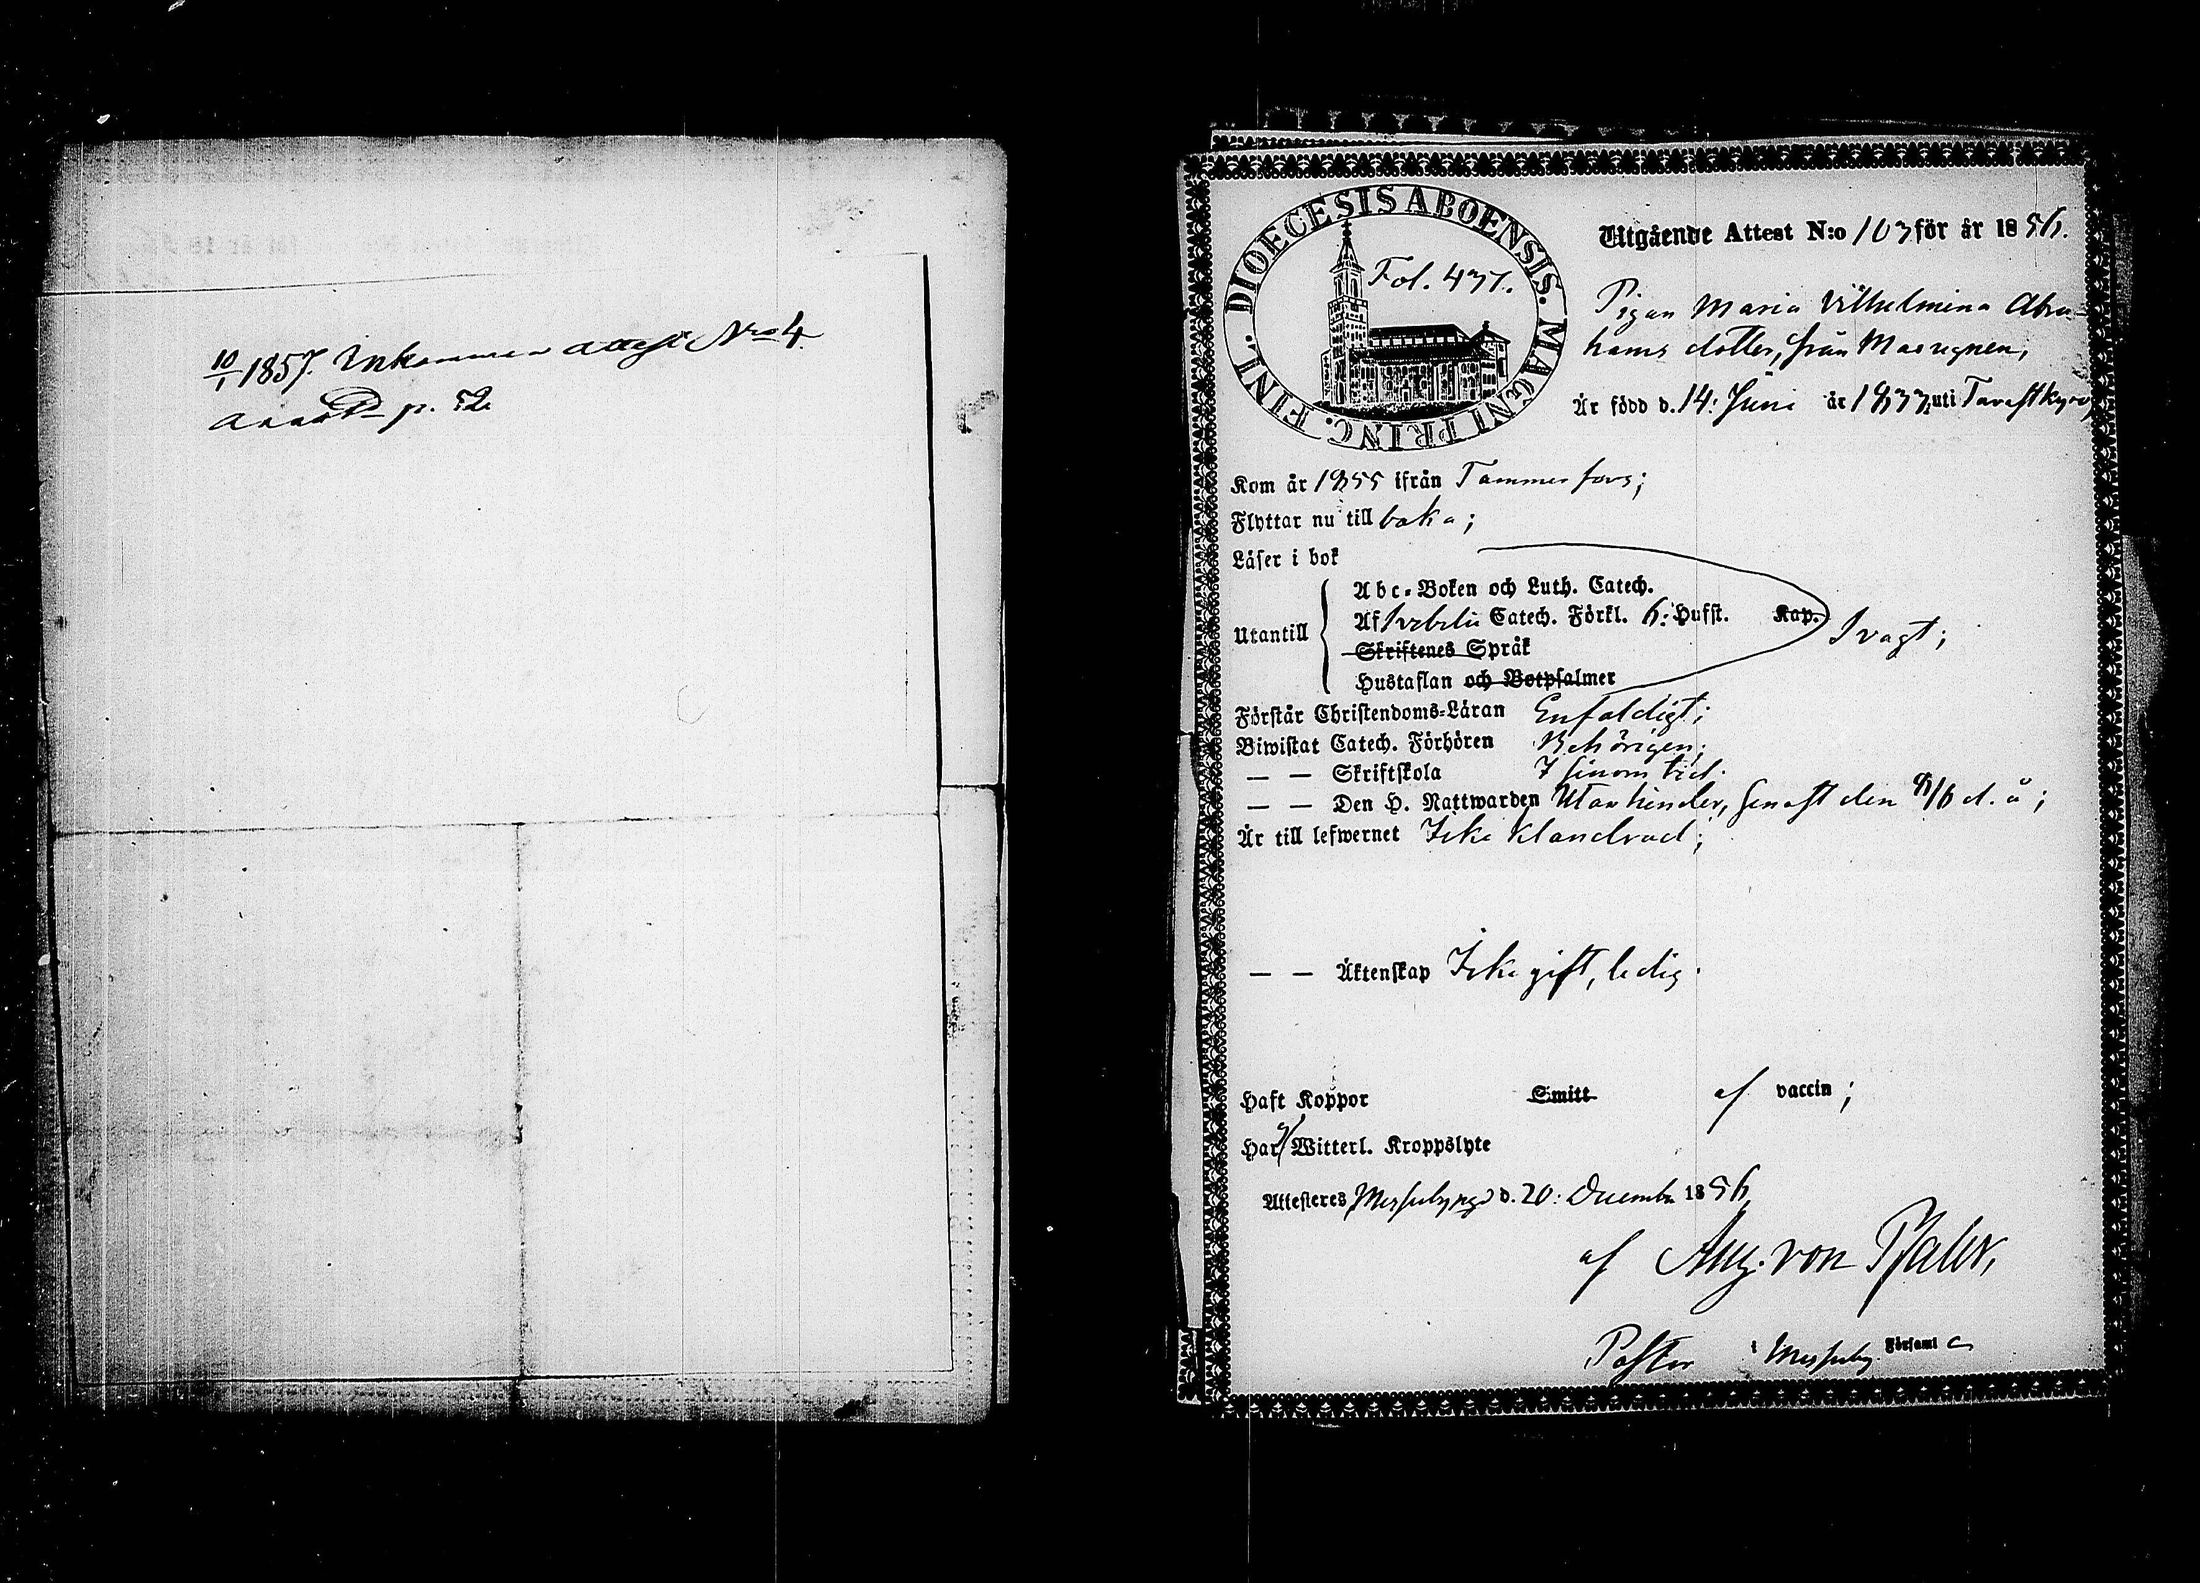 10/1 1857. Inkommen attest No 4
p. 52
DIOECESIS ABOENSIS. MAGNI PRINC. FINL.
Fol. 437.
Utgående Attest N:o 103 för år 1856.
Pigan Maria Vilhelmina Abra-
hams dotter, från
Är född d. 14: Juni år 1833, uti Tavastkyro,
Kom år 1855 ifrån Tammerfors;
Flyttar nu till baka;
Läser i bok
Utantill
Abc-Boken och Luth. Catech.
Af Svebelii Catech. Förkl. 6: Hufst. Kap.
Skriftenes Språk
Hustaflan och Botpsalmer
Svagt;
Förstår Christendoms-Läran Enfaldigt;
Biwistat Catech. Förhören Behörigen;
— — Skriftskola I sinom tid.
— — Den H. Nattwarden senast den 8/6 d. å;
Är till lefwernet Icke klandrad;
— — Äktenskap Icke gift, ledig.
Haft Koppor Smitt af vaccin;
Har ej Witterl. Kroppslyte
Attesteres Messuby d. 20: December 1856,
af Aug. von Pfaler,
Pastor i Messuby Församl